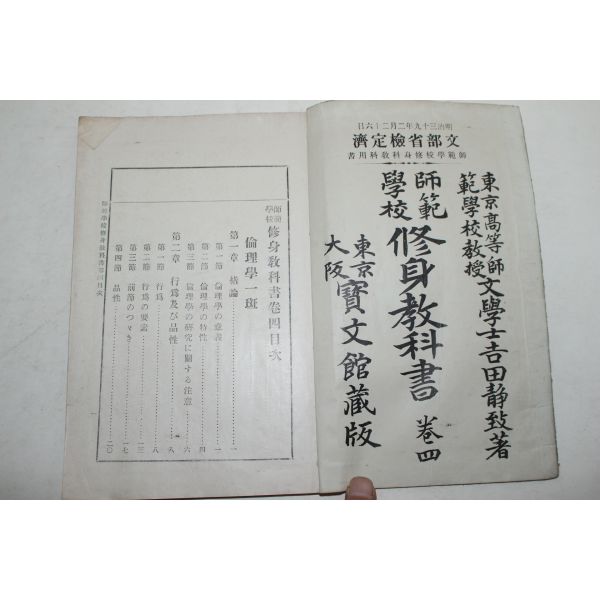 明治三十九年二月二十六日
文部省檢定濟
師範學校修身科教科用書
東京高等師範學校教授 文學士吉田靜致著
師範學校 修身教科書 卷四
東京 大阪 寶文館藏版
師範學校 修身教科書卷四目次
倫理學一斑
第一章 緖論……一
第一節 倫理學の意義……一
第二節 倫理學の特性……四
第三節 倫理學の研究に關する注意……六
第二章 行爲及び品性……八
第一節 行爲……八
第二節 行爲の要素……一三
第三節 前節のつゞき……一七
第四節 品性……二〇
師範學校修身教科書卷四目次